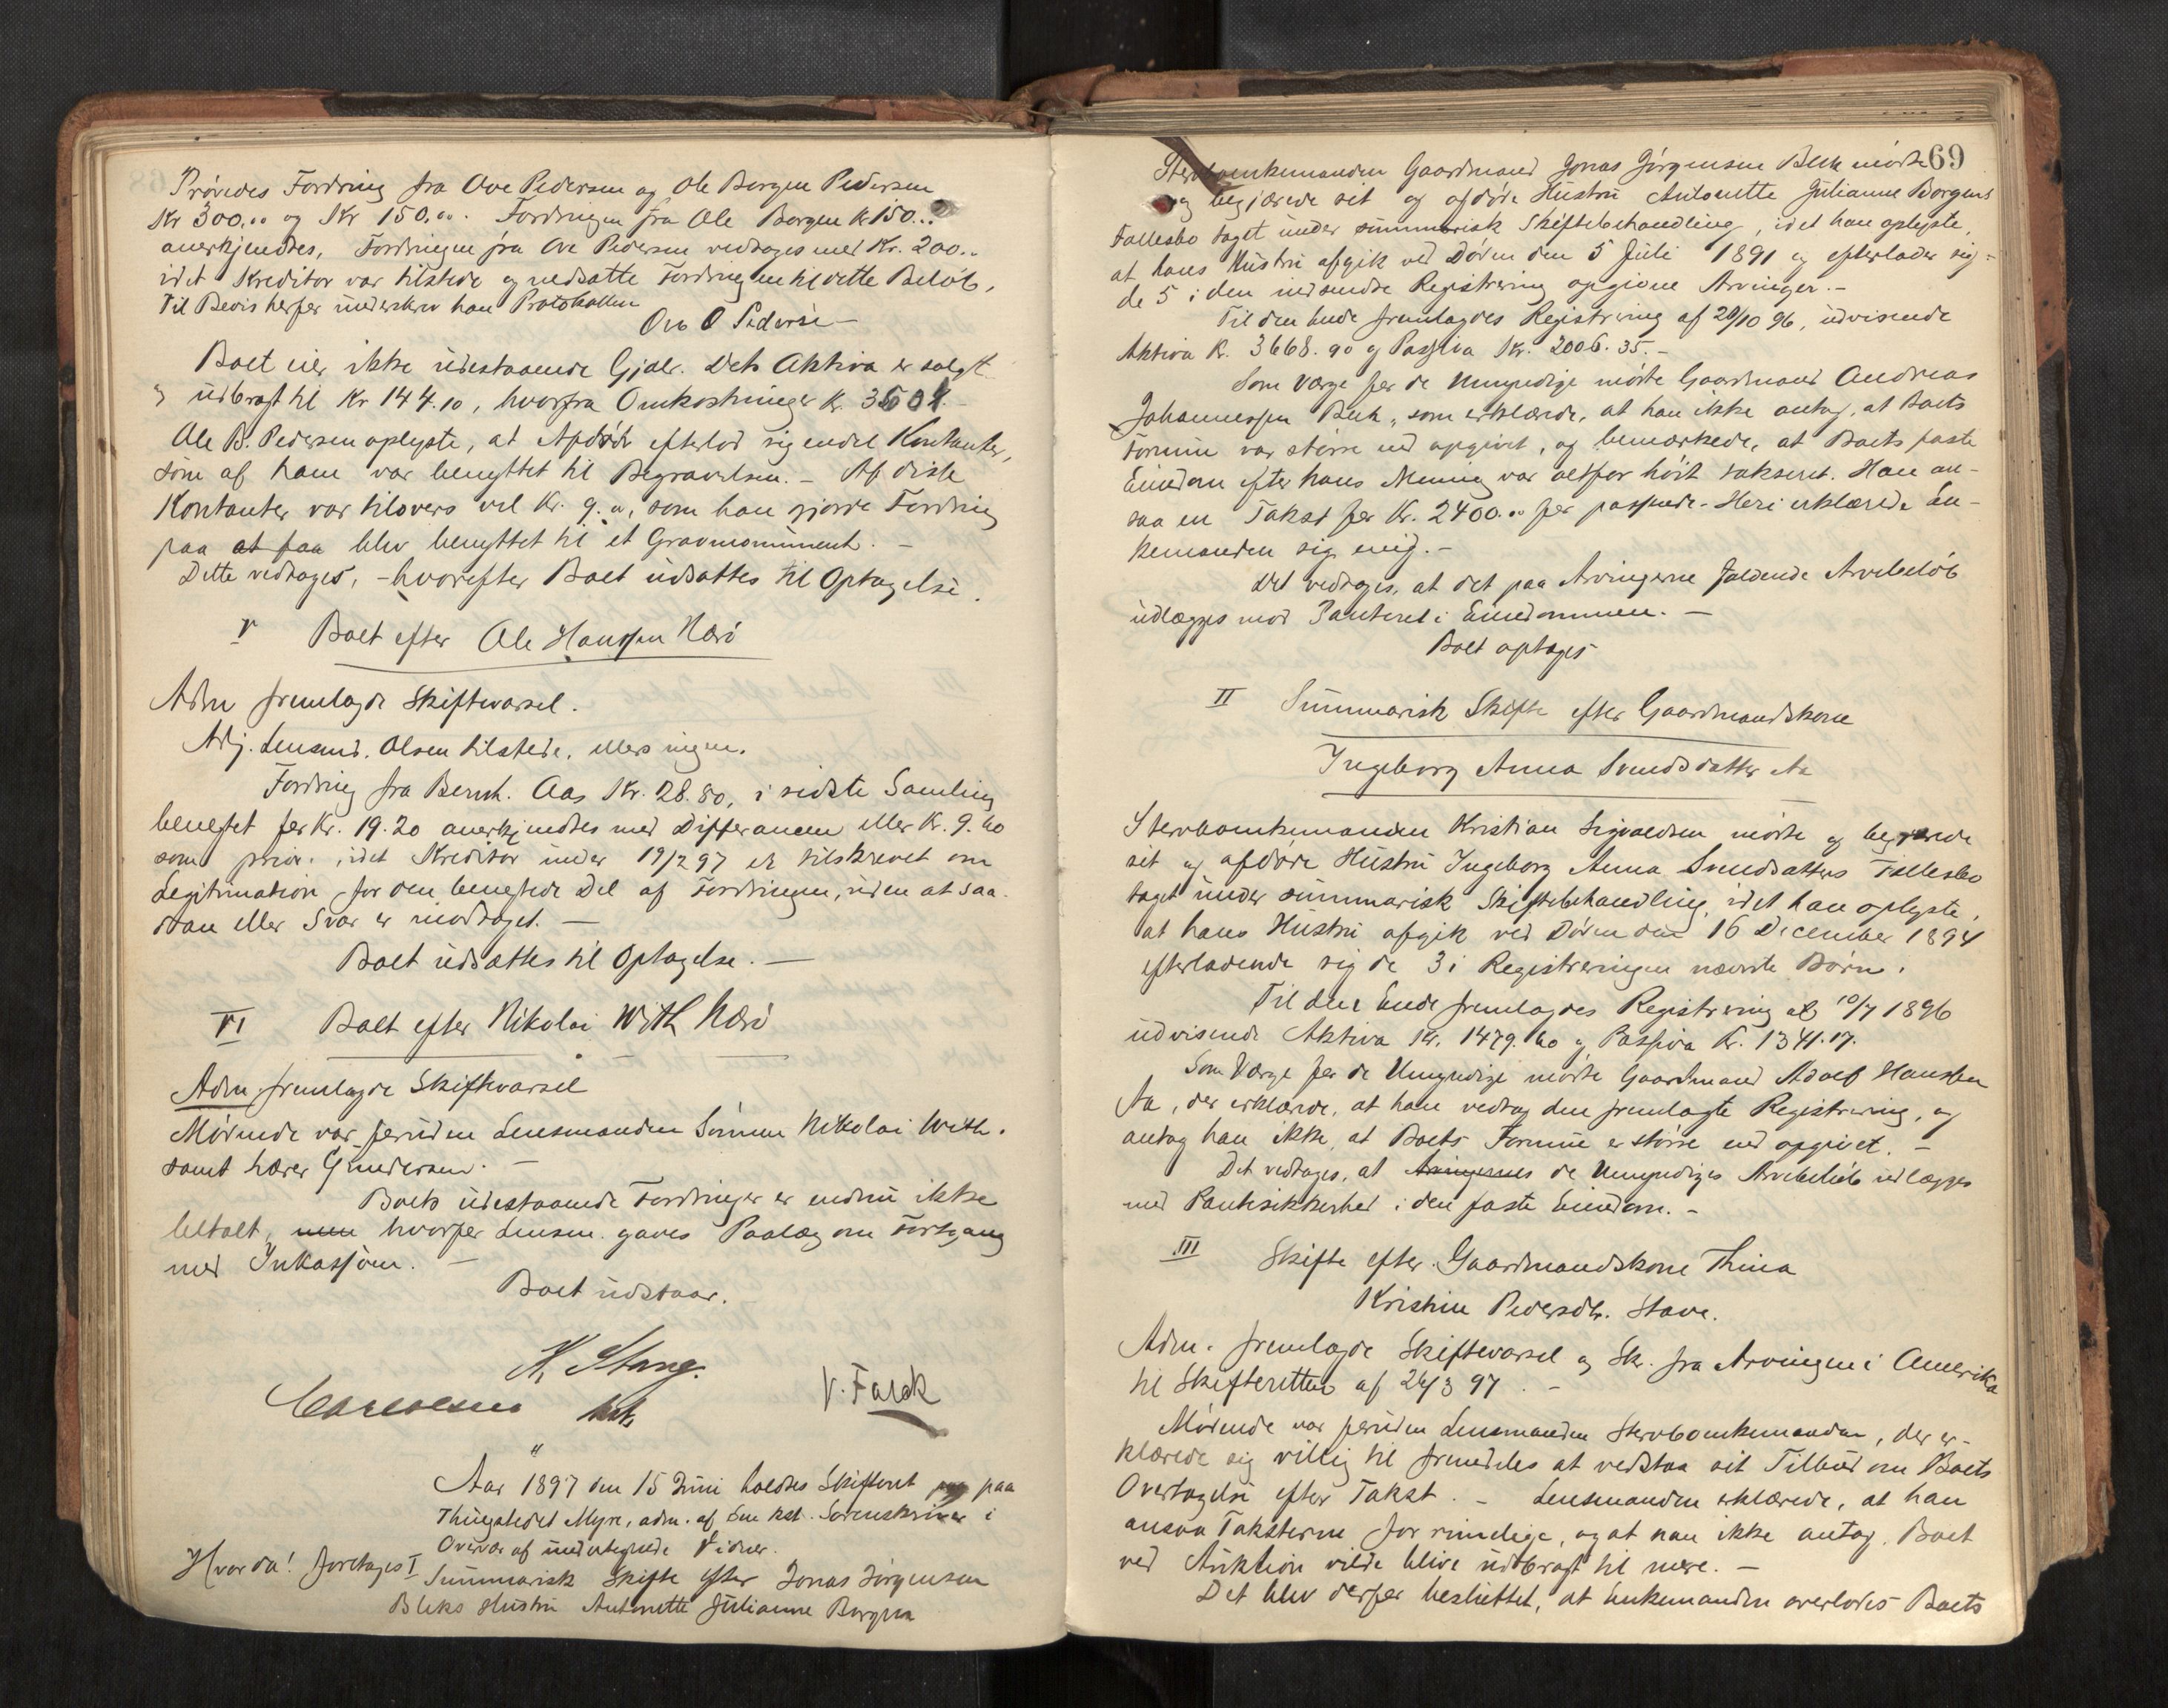 Prøvedes Fordring fra Ove Pedersen og Ole Borgen Pedersen
Kr 300.00 og Kr 150.00. Fordringen fra Ole Borgen k 150..
anerkjendtes, Fordringen fra Ove Pedersen vedtages med Kr. 200..
idet Kreditor var tilstede og nedsatte Fordringen til dette Beløb,
Til Bevis herfor underskrev han Protokollen
Ove O Pederse
Boet eier ikke udestaaende Gjæld. Dets Aktiva er solgt
og udbragt til Kr 144.10, hvorfra Omkostninger Kr.
Ole B. Pedersen oplyste, at Afdøde efterlod sig endel Kontanter,
som af ham var benyttet til Begravelsen. – Af disse
Kontanter var tilovers vel Kr. 9.00, som han gjorde Fordring
paa at faa blev benyttet til et Gravmonument. –
Dette vedtages, – hvorefter Boet udsattes til Optagelse.
V Boet efter Ole Hanssen Værø
Adm fremlagde Skiftevarsel.
Adj. Lensmd. Olsen tilstede, ellers ingen.
Fordring fra Bernh. Aas Kr. 28.80, i sidste Samling
benegtet for Kr. 19.20 anerkjendtes med Differancen eller Kr. 9.60
som prior. idet Kreditor under 19/2 97 er tilskrevet om
Legitimation for den benegtede Del af Fordringen, uden at saa-
dan eller Svar er modtaget. –
Boet udsættes til Optagelse. –
VI Boet efter Nikolai With Værø
Adm fremlagde Skiftevarsel
Mødende var foruden Lensmanden Sønnen Nikolai With.
samt lærer Gundersen. –
Boets udestaaende Fordringer er endnu ikke
betalt, men hvorfor Lensm. gaves Paalæg om Fortgang
med Inkassoen. –
Boet udstaar.
K. Stang.
kst.
V. Falck
"
Aar 1897 den 15 Juni holdtes Skifteret paa
Thingstedet Myre, adm. af den kst. Sorenskriver i
Overvær af undertegnede Vidner.
Hvorda! foretages I
Summarisk Skifte efter Jonas Jørgensen
Bleks Hustru Antonette Julianne Borgen
69
Stervboenkemanden Gaardmand Jonas Jørgensen Blek mødte
og begjærede sit og afdøde Hustru Antonette Julianne Borgens
Fællesbo taget under summarisk Skiftebehandling, idet han oplyste,
at hans Hustru afgik ved Døden den 5 Juli 1891 og efterlader sig
de 5 i den indsendte Registrering opgivne Arvinger. –
Til den Ende fremlagdes Registrering af 28/10 96, udvisende
Aktiva K. 3668.90 og Passiva Kr. 2006.35. –
Som Værge for de Umyndige mødte Gaardmand Andreas
Johannessen Blek, som erklærede, at han ikke antog, at Boets
Formue var større end opgivet, og bemærkede, at Boets faste
Eiendom efter hans Mening var altfor høit takseret. Han an-
saa en Takst for Kr. 2400.00 for passende. Heri erklærede En-
kemanden sig enig. –
Det vedtoges, at det paa Arvingerne faldende Arvebeløb
udlægges mod Panteret i Eiendommen. –
Boet optages
II Summarisk Skifte efter Gaardmandskone
Ingeborg Anna Svendsdatter Aa
Stervboenkemanden Kristian Sigvaldsen mødte og begjærede
sit og afdøde Hustru Ingeborg Anna Svendsdatters Fællesbo
taget under summarisk Skiftebehandling, idet han oplyste,
at hans Hustru afgik ved Døden den 16 December 1894
efterladende sig de 3 i Registreringen nævnte Børn.
Til den Ende fremlagdes Registrering af 10/7 1896
udvisende Aktiva Kr. 1479.60 og Passiva Kr. 1341.17.
Som Værge for de Umyndige mødte Gaardmand Adolf Hanssen
Aa, der erklærede, at han vedtog den fremlagte Registrering, og
antog han ikke, at Boets Formue er større end opgivet. –
Det vedtages, at Arvingernes de Umyndiges Arvebeløb udlægges
med Pantsikkerhed i den faste Eiendom. –
III Skifte efter Gaardmandskone Thina
Kristine Pedersdtr. Stave.
Adm. fremlagde Skiftevarsel og Skr. fra Arvingen i Amerika
til Skifteretten af 26/3 97. –
Mødende var foruden Lensmanden Stervboenkemanden, der er-
klærede sig villig til fremdeles at vedstaa sit Tilbud om Boets
Overtagelse efter Takst. – Lensmanden erklærede, at han
ansaa Taksterne for rimelige, og at han ikke antog, Boet
ved Auktion vilde blive udbragt til mere. –
Det blev derfor besluttet, at Enkemanden overlodes Boets